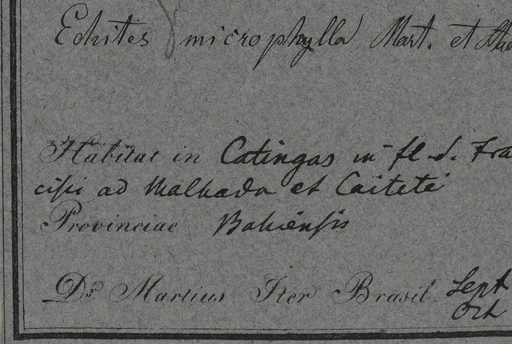 Echites microphylla Mart. et
Habitat in Catingas in fl. S. Fra
cisci ad Malhada et Caiteté
Provinciae Bahiensis
Dr. Martius Iter Brasil. Sept
Oct